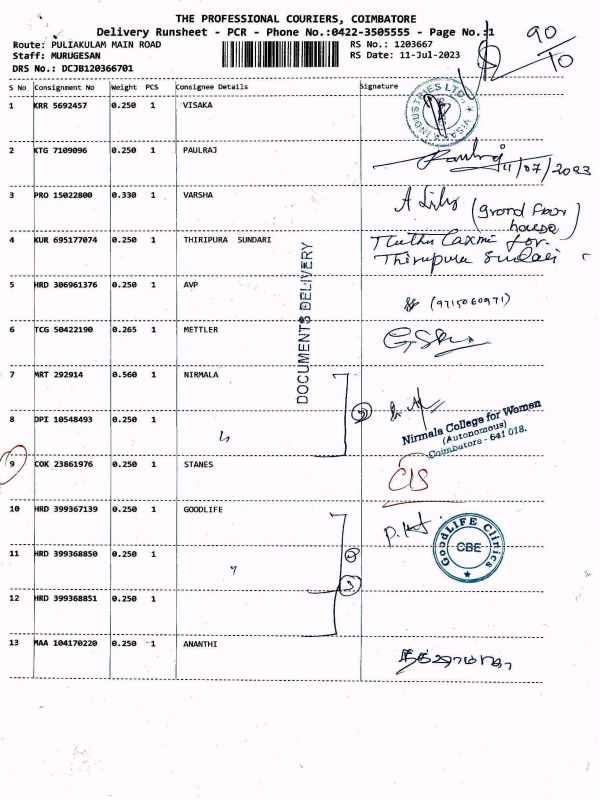 THE PROFESSIONAL COURIERS, COIMBATORE
Delivery Runsheet - PCR - Phone No.:0422-3505555 - Page No.:1
90
10
Route: PULIAKULAM MAIN ROAD
RS No.: 1203667
Staff: MURUGESAN
RS Date: 11-Jul-2023
DRS No.: DCJB120366701
S No Consignment No Weight PCS Consignee Details Signature
1 KRR 5692457 0.250 1 VISAKA
VISAKA INDUSTRIES LTD.
2 KTG 7109096 0.250 1 PAULRAJ
Paulraj
11/07/2023
3 PRO 15022800 0.330 1 VARSHA
A Lily (grond floor house)
4 KUR 695177074 0.250 1 THIRIPURA SUNDARI
Muthu Laxmi for.
Thiripura Sundari
DOCUMENTS DELIVERY
5 HRD 306961376 0.250 1 AVP
(9715060971)
6 TCG 50422190 0.265 1 METTLER
7 MRT 292914 0.560 1 NIRMALA
2
Nirmala College for Women
(Autonomous)
Coimbatore - 641 018.
8 DPI 10548493 0.250 1
9 COK 23861976 0.250 1 STANES
CIS
10 HRD 399367139 0.250 1 GOODLIFE
GoodLIFE Clinics
CBE
11 HRD 399368850 0.250 1
3
12 HRD 399368851 0.250 1
13 MAA 104170220 0.250 1 ANANTHI